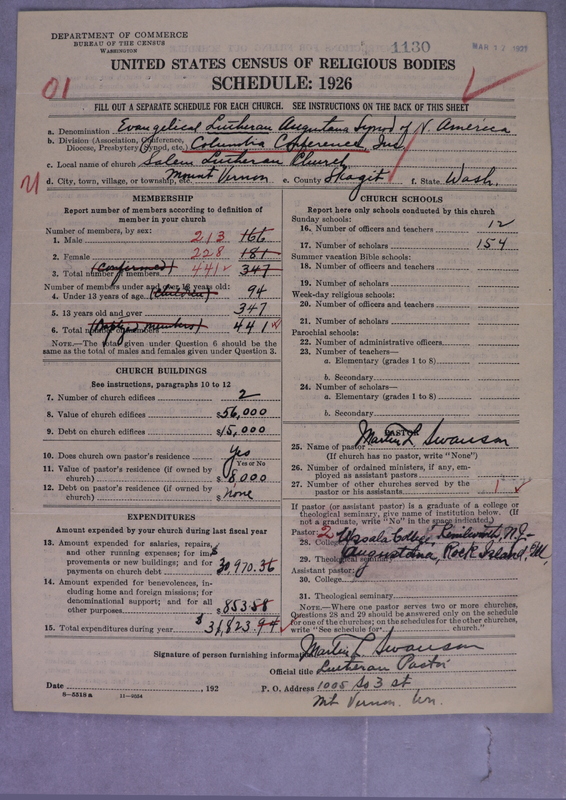 DEPARTMENT OF COMMERCE
BUREAU OF THE CENSUS
WASHINGTON
1130
MAR 17
UNITED STATES CENSUS OF RELIGIOUS BODIES
SCHEDULE: 1926
01
FILL OUT A SEPARATE SCHEDULE FOR EACH CHURCH. SEE INSTRUCTIONS ON THE BACK OF THIS SHEET
a. Denomination Evangelical Lutheran Augustana Synod of N. America
b. Division (Association, Conference, Diocese, Presbytery, Synod, etc.) Columbia Conference, Inc.
c. Local name of church Salem Lutheran Church
d. City, town, village, or township, etc. Mount Vernon e. County Skagit f. State Wash.
MEMBERSHIP
Report number of members according to definition of
member in your church
Number of members, by sex:
1. Male 213 166
2. Female 228 181
3. Total number of members (Confirmed) 441 347
Number of members under and over 13 years old:
4. Under 13 years of age 94
5. 13 years old and over 347
6. Total number of members 441
NOTE.—The total given under Question 6 should be the
same as the total of males and females given under Question 3.
CHURCH BUILDINGS
See instructions, paragraphs 10 to 12
7. Number of church edifices 2
8. Value of church edifices $56,000
9. Debt on church edifices $15,000
10. Does church own pastor's residence? yes
Yes or No
11. Value of pastor's residence (if owned by
church) $8,000
12. Debt on pastor's residence (if owned by
church) $none
EXPENDITURES
Amount expended by your church during last fiscal year
13. Amount expended for salaries, repairs,
and other running expenses; for improvements
or new building; and for
payments on church debt $30970.36
14. Amount expended for benevolences, including
home and foreign missions; for
denominational support; and for all
other purposes $853.58
15. Total expenditures during year $31,823.94
CHURCH SCHOOLS
Report here only schools conducted by this church
Sunday schools:
16. Number of officers and teachers 12
17. Number of scholars 154
Summer vacation Bible schools:
18. Number of officers and teachers
19. Number of scholars
Week-day religious schools:
20. Number of officers and teachers
21. Number of scholars
Parochial schools:
22. Number of administrative officers
23. Number of teachers—
a. Elementary (grades 1 to 8)
b. Secondary
24. Number of scholars—
a. Elementary (grades 1 to 8)
b. Secondary
PASTOR
25. Name of pastor Martin L Swanson
(If church has no pastor, write "None")
26. Number of ordained ministers, if any, employed
as assistant pastors
27. Number of other churches served by
pastor or his assistants 1
If pastor (or assistant pastor) is a graduate of a college or
theological seminary, give name of institution below. (If
not a graduate, write "No" in the space indicated.)
Pastor: 2
28. College Upsala College, Kenilworth, N.J.
29. Theological seminary Augustana, Rock Island, Ill.
Assistant pastor:
30. College
31. Theological seminary
NOTE.—Where one pastor serves two or more churches,
Questions 28 and 29 should be answered only on the schedule
for one of the churches; on the schedules for the other churches,
write "See schedule for church."
Signature of person furnishing information Martin L Swanson
Official title Lutheran Pastor
Date , 192
P. O. Address 1005 So 3 st
Mt Vernon. Wn.
8-5518 a 11-9054